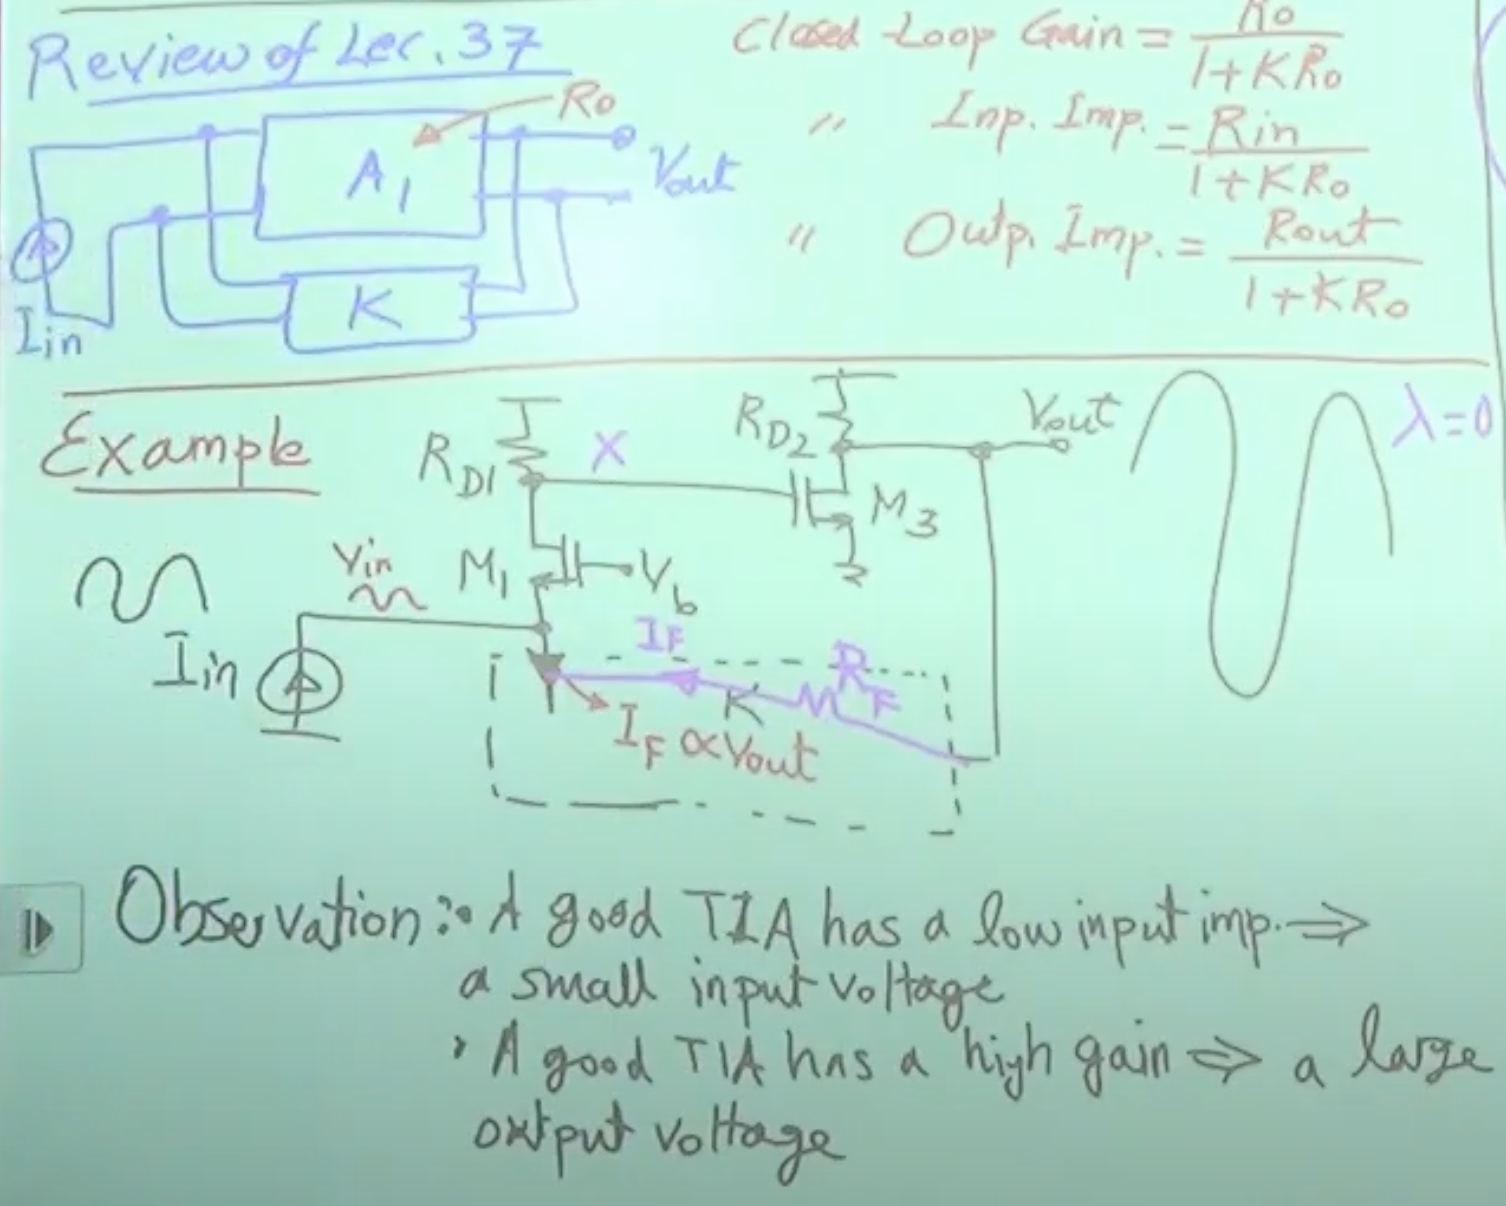 Review of Lec. 37
Closed-Loop Gain = Ro / 1+KRo
" Inp. Imp. = Rin / 1+KRo
" Outp. Imp. = Rout / 1+KRo
Ro
A1
Vout
K
Iin
Example
RD1
X
RD2
Vout
λ=0
M3
Vin
M1
Vb
Iin
IF
RF
K
IF ∝ Vout
Observation: • A good TIA has a low input imp. ⇒
a small input voltage
• A good TIA has a high gain ⇒ a large
output voltage